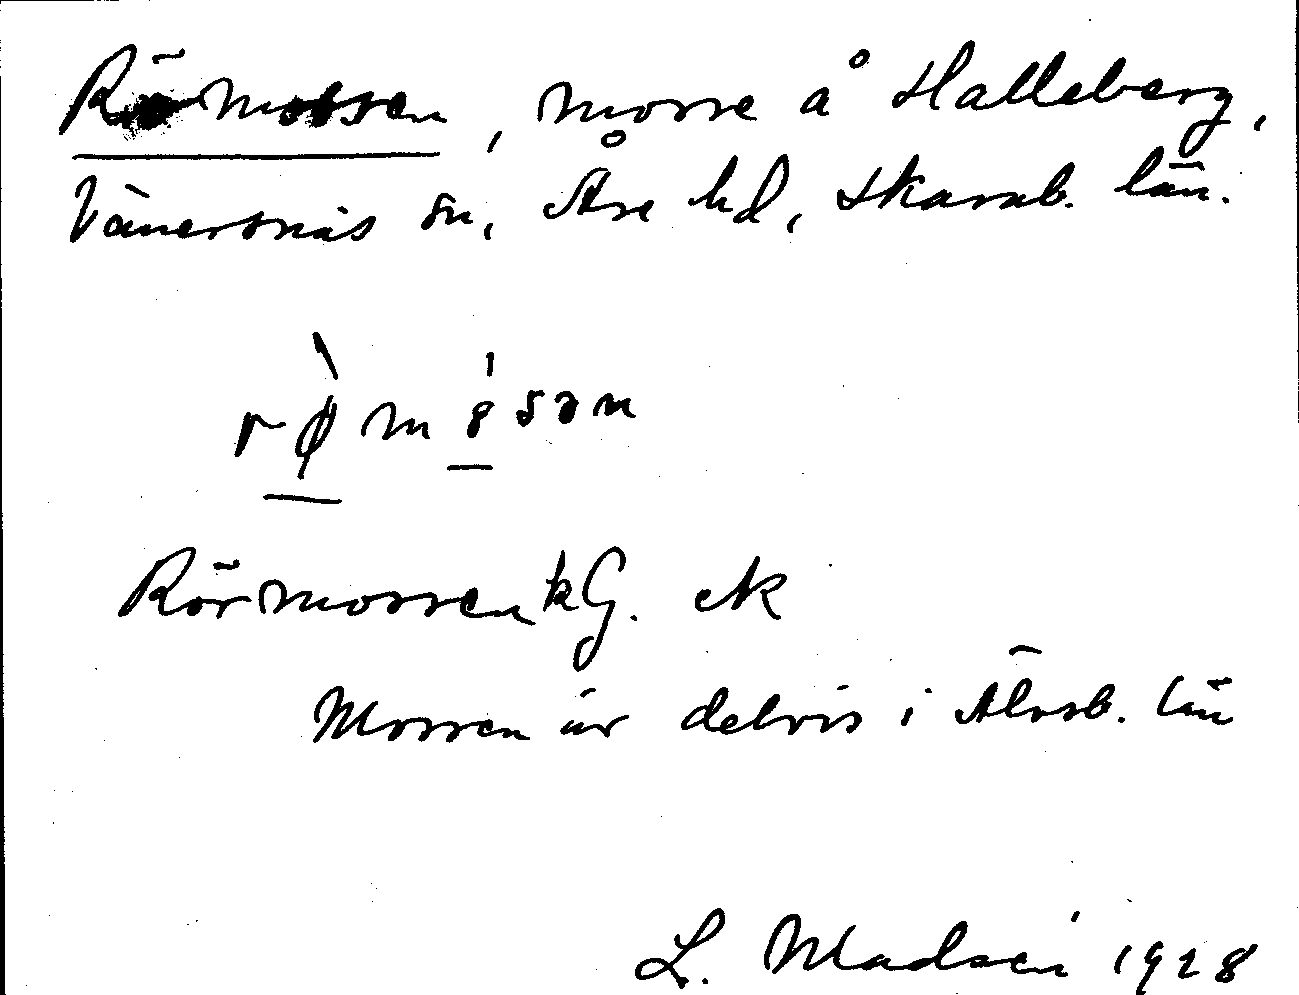 Römossen, mosse å Halleberg,
Vänersnäs sn, Åse hd, Skarab. län.
rø̀mȯsən
Rörmossen kG. eK
Mossen är delvis i Älvsb. län
L. Madsén 1928